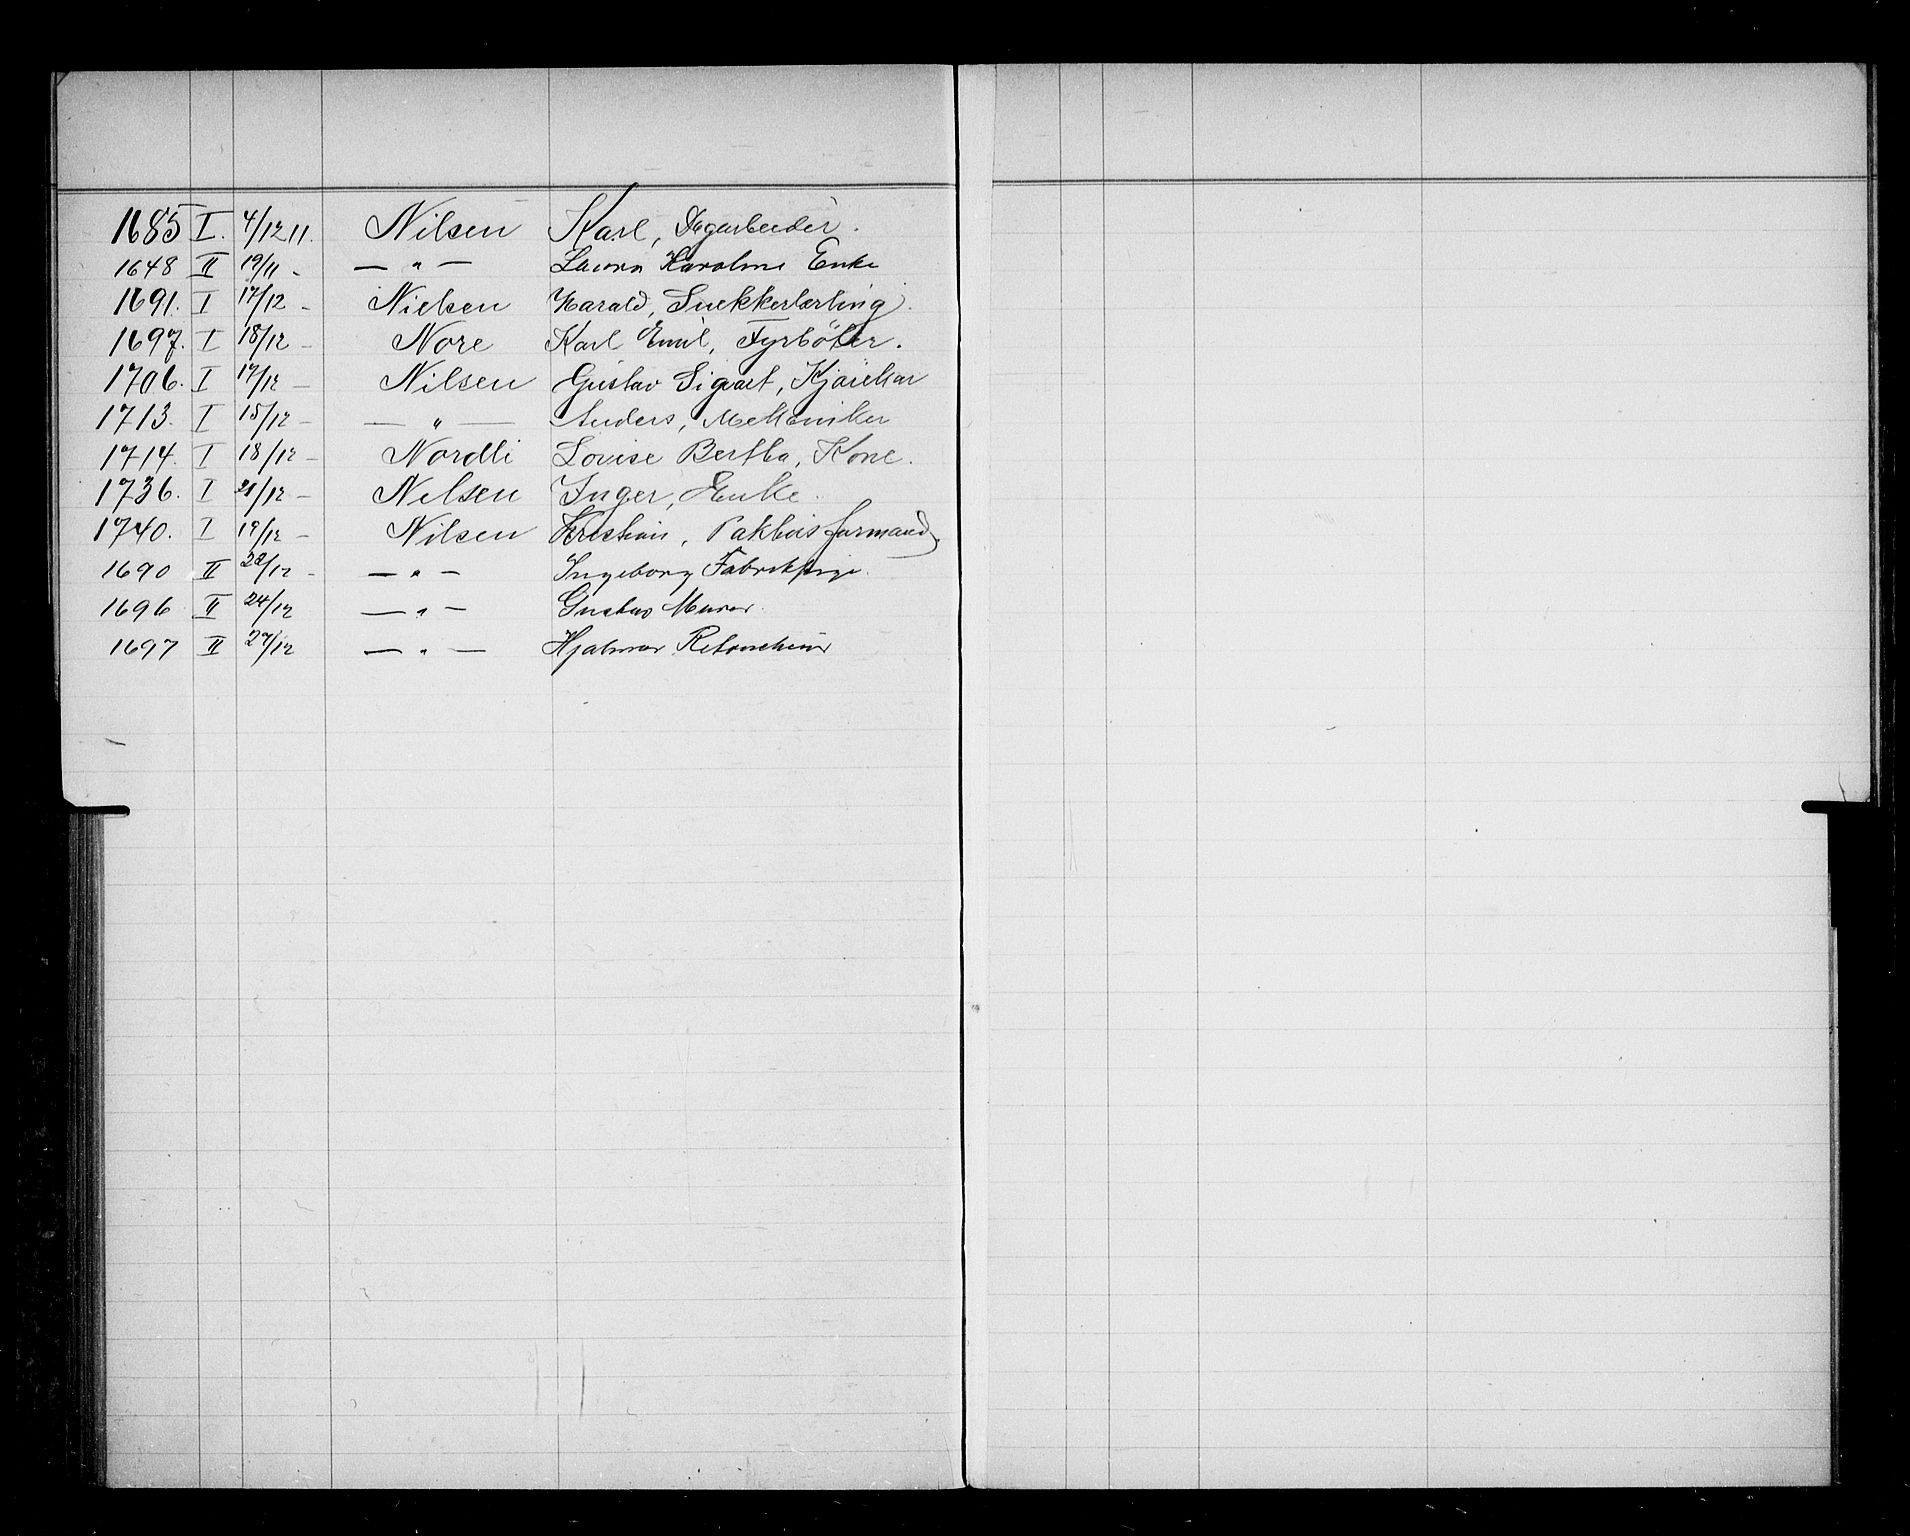 1685 I. 4/12 11. Nilsen Karl, Dagarbeider.
1648 II 19/11 - — " — Laura Karoline Enke
1691. I 17/12 - Nielsen Harald, Snekkerlærling.
1697. I 18/12 - Nore Karl Emil, Fyrböter.
1706. I 17/12 - Nilsen Gustav Sigvart,
1713. I 15/12 - — " — Anders, Mekaniker
1714. I 18/12 - Nordli Lovise Bertha, Kone.
1736. I 21/12 - Nilsen Inger, Enke.
1740. I 19/12 - Nilsen Kristian, Pakhusformand
1690 II 22/12 - — " — Ingeborg Fabrikpige.
1696 II 24/12 — " — Gustav Murer.
1697 II 27/12 — " — Hjalmar